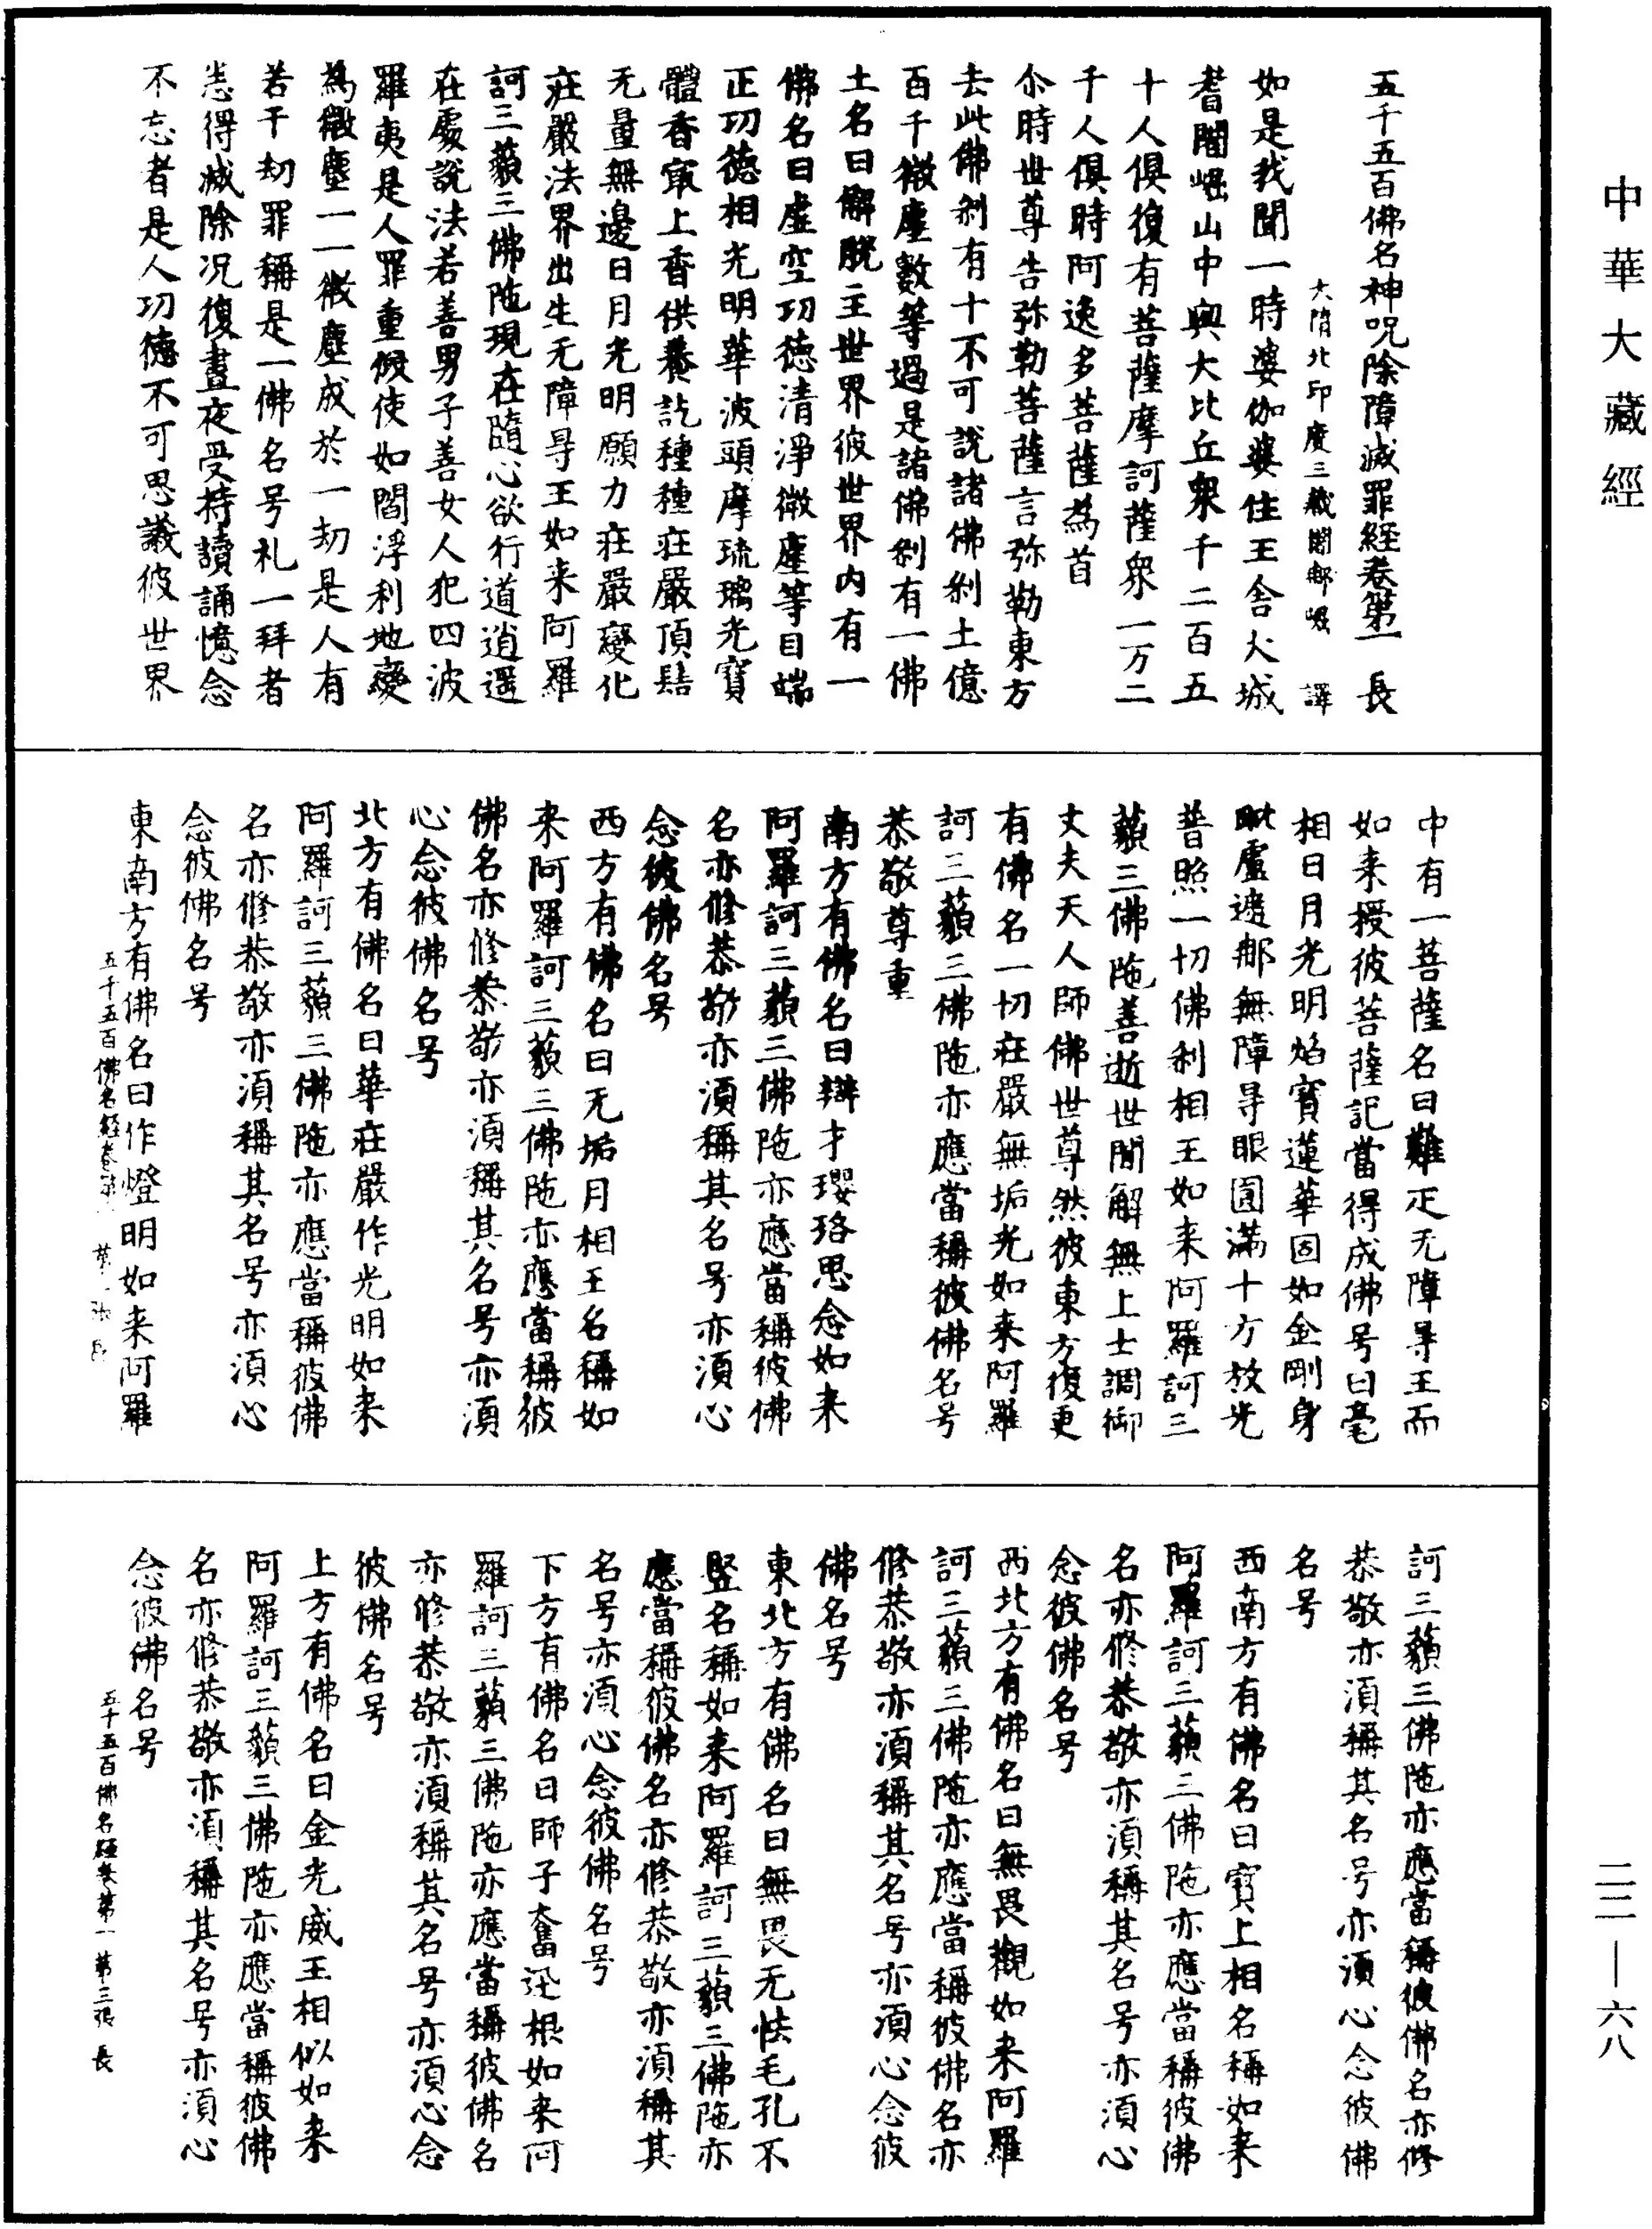 中華大藏經
五千五百佛名神呪除障滅罪経卷第一 長
大隋北印度三藏闍那崛 譯
如是我聞一時婆伽婆住王舍大城
耆闍崛山中與大比丘衆千二百五
十人俱復有菩薩摩訶薩衆一万二
千人俱時阿逸多菩薩為首
尒時世尊告弥勒菩薩言弥勒東方
去此佛刹有十不可說諸佛刹土億
百千微塵數等過是諸佛刹有一佛
土名曰解脫主世界彼世界内有一
佛名曰虛空功德清淨微塵等目端
正功德相光明華波頭摩琉璃光寶
體香㝡上香供養訖種種莊嚴頂髻
无量無邊日月光明願力莊嚴變化
莊嚴法界出生无障㝵王如来阿羅
訶三藐三佛陁現在隨心欲行道逍遥
在處說法若善男子善女人犯四波
羅夷是人罪重假使如閻浮利地變
為微塵一一微塵成於一刧是人有
若干刧罪稱是一佛名号礼一拜者
悉得滅除况復晝夜受持讀誦憶念
不忘者是人功德不可思議彼世界
中有一菩薩名曰難疋无障㝵王而
如来授彼菩薩記當得成佛号曰毫
相日月光明焰寶蓮華固如金剛身
毗盧遮那無障㝵眼圓滿十方放光
普照一切佛刹相王如来阿羅訶三
藐三佛陁善逝世間解無上士調御
丈夫天人師佛世尊然彼東方復更
有佛名一切莊嚴無垢光如来阿羅
訶三藐三佛陁亦應當稱彼佛名号
恭敬尊重
南方有佛名曰辯才瓔珞思念如来
阿羅訶三藐三佛陁亦應當稱彼佛
名亦修恭敬亦須稱其名号亦須心
念彼佛名号
西方有佛名曰无垢月相王名稱如
来阿羅訶三藐三佛陁亦應當稱彼
佛名亦修恭敬亦須稱其名号亦須
心念彼佛名号
北方有佛名曰華莊嚴作光明如来
阿羅訶三藐三佛陁亦應當稱彼佛
名亦修恭敬亦須稱其名号亦須心
念彼佛名号
東南方有佛名曰作燈明如来阿羅
五千五百佛名経卷第
訶三藐三佛陁亦應當稱彼佛名亦修
恭敬亦須稱其名号亦須心念彼佛
名号
西南方有佛名曰寶上相名稱如来
阿羅訶三藐三佛陁亦應當稱彼佛
名亦修恭敬亦須稱其名号亦須心
念彼佛名号
西北方有佛名曰無畏觀如来阿羅
訶三藐三佛陁亦應當稱彼佛名亦
修恭敬亦須稱其名号亦須心念彼
佛名号
東北方有佛名曰無畏无怯毛孔不
竪名稱如来阿羅訶三藐三佛陁亦
應當稱彼佛名亦修恭敬亦須稱其
名号亦須心念彼佛名号
下方有佛名曰師子奮迅根如来阿
羅訶三藐三佛陁亦應當稱彼佛名
亦修恭敬亦須稱其名号亦須心念
彼佛名号
上方有佛名曰金光威王相似如来
阿羅訶三藐三佛陁亦應當稱彼佛
名亦修恭敬亦須稱其名号亦須心
念彼佛名号
五千五百佛名経卷第一 第三張 長
二二—六八